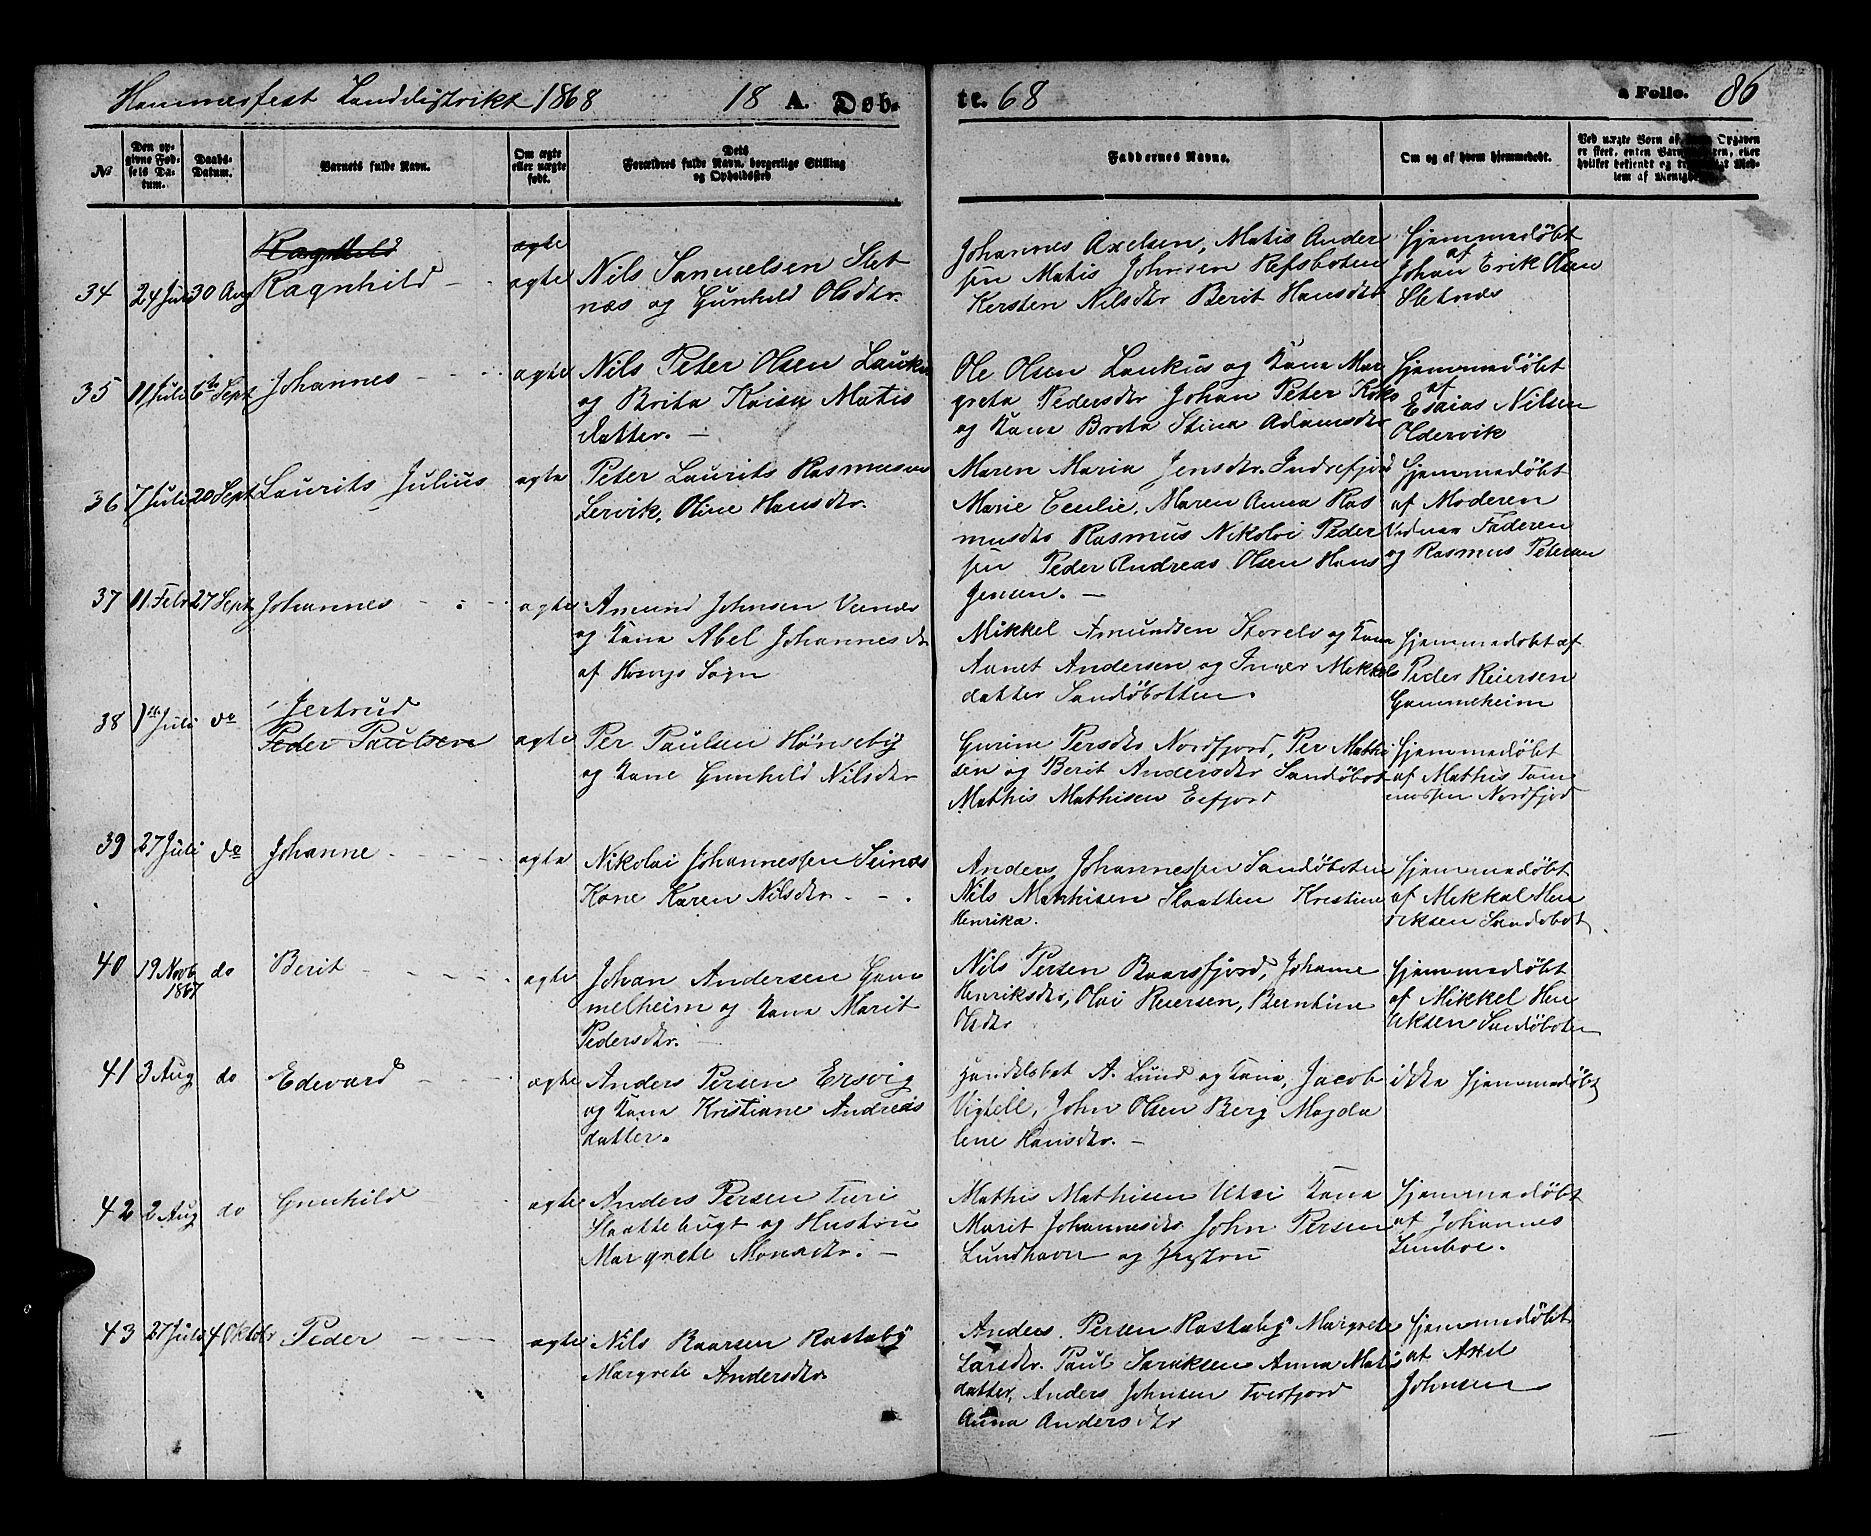 Hammerfest Landdistrikt 1868 18 A. Døb-
te. 68 a Folio. 86
No
Den op-
givne Fød-
sels Da-
tum.
Daabs-
Datum.
Barnets fulde Navn.
Om ægte
eller uægte
født.
Dets
Forældres fulde Navn, borgerlige Stilling
og Opholdssted
Faddernes Navne.
Om og af hvem hjemmedøbt.
Ved uægte Børn af Opgaven
er skeet, enten Barn eller
hvilket bekjendt og Med-
lem af Menigh
34 24 Juli 30 Aug
Ragnhild
Ragnhild
ægte
ægte
Nils Samuelsen Slet
næs og Gunhild Olsdtr.
Johannes Axelsen, Matis Ander
sen Matis Johnsen Refsboten
Kersten Nilsdtr Berit Hansdtr
Hjemmedöbt
af
Johan Erik Olsen
Sletnæs
35 11 Juli 6te Sept Johannes ægte
Nils Peter Olsen Lauku
og Brita Kaisa Matis
datter.
Ole Olsen Laukus og Kona Mar
greta Pedersdtr Johan Peter Koks
og Kona Breta Stina Adamsdtr
Hjemmedöbt
af
Esaias Nilsen
Oldervik
36 7 Juli 20 Sept Laurits Julius ægte
Peter Laurits Rasmussen
Lervik, Oline Hansdtr.
Maren Maria Jensdtr. Indrefjord
Marie Cecilie, Maren Anna Ras
musdtr Rasmus Nikolai Peder
sen Peder Andreas Olsen Hans
Jensen.
Hjemmedöbt
af Moderen
Vidner Faderen
og Rasmus Petersen
37 11 Febr 27 Sept Johannes ægte
Amund Johnsen
og Kona Abel Johannesdtr
af Sogn
Mikkel Amundsen Storelv og Kona
Aanet Andersen og Inger Mikkels
datter Sandöbotten.
Hjemmedøbt af
Peder Reiersen
Gammeheim
38 1ste Juli do
Jertrud
Peder Paulsen ægte
Per Paulsen Hönseby
og Kone Gunhild Nilsdtr
Gurine Persdtr Nordfjord, Per Mathi
sen og Berit Andersdtr Sandöbot
Mathis Mathisen Eefjord
Hjemmedöbt
af Mathis Tom
messen Nordfjord
39 27 Juli do Johanne ægte
Nikolai Johannessen Seinæs
Kone Karen Nilsdtr.
Anders Johannessen Sandöboten
Nils Mathisen Slaatten Kristine
Henrika.
Hjemmedöbt
af Mikkel Hen
riksen Sandobot
40 19 Novb do Berit ægte
1867
Johan Andersen Gam
melheim og Kona Marit
Pedersdtr.
Nils Persen Baarsfjord, Johanne
Henriksdtr, Olai Reiersen, Bernhine
Olsdtr
Hjemmedöbt
af Mikkel Hen
riksen Sandöboten
41 3 Aug do Edevard ægte
Anders Persen Ersvig
og Kona Kristiane Andreas
datter.
Handelsbet A. Lund og Kona, Jacob
Vigtell, John Olsen Berg Magda
lene Hansdtr.
ikke hjemmedöbt
42 2 Aug do Gunhild ægte
Anders Persen Turi
Slaattebugt og Hustru
Margrete Monsdtr.
Mathis Mathisen Utsi Kona
Marit Johannesdtr John Persen
Lundhavn og Hustru
Hjemmedöbt
af Johannes
43 27 Juli 4 Oktbr Peder ægte
Nils Baarsen Rastaby
Margrete Andersdtr
Anders Persen Rastaby Margrete
Larsdtr. Paul Isaksen Anna Matis
datter, Anders Johnsen Tverfjord
Anna Andersdtr
Hjemmedöbt
af Axel
Johnsen